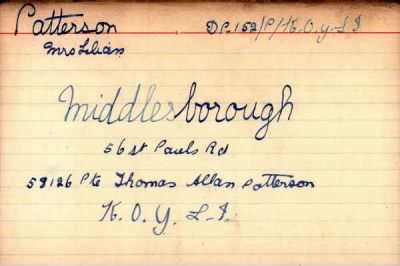 Patterson D.P. 152/P/K.O.Y.L.I
Mrs Lilian
Middlesborough
56 St Pauls Rd
58126 Pte Thomas Allan Patterson
K.O.Y.L.I.